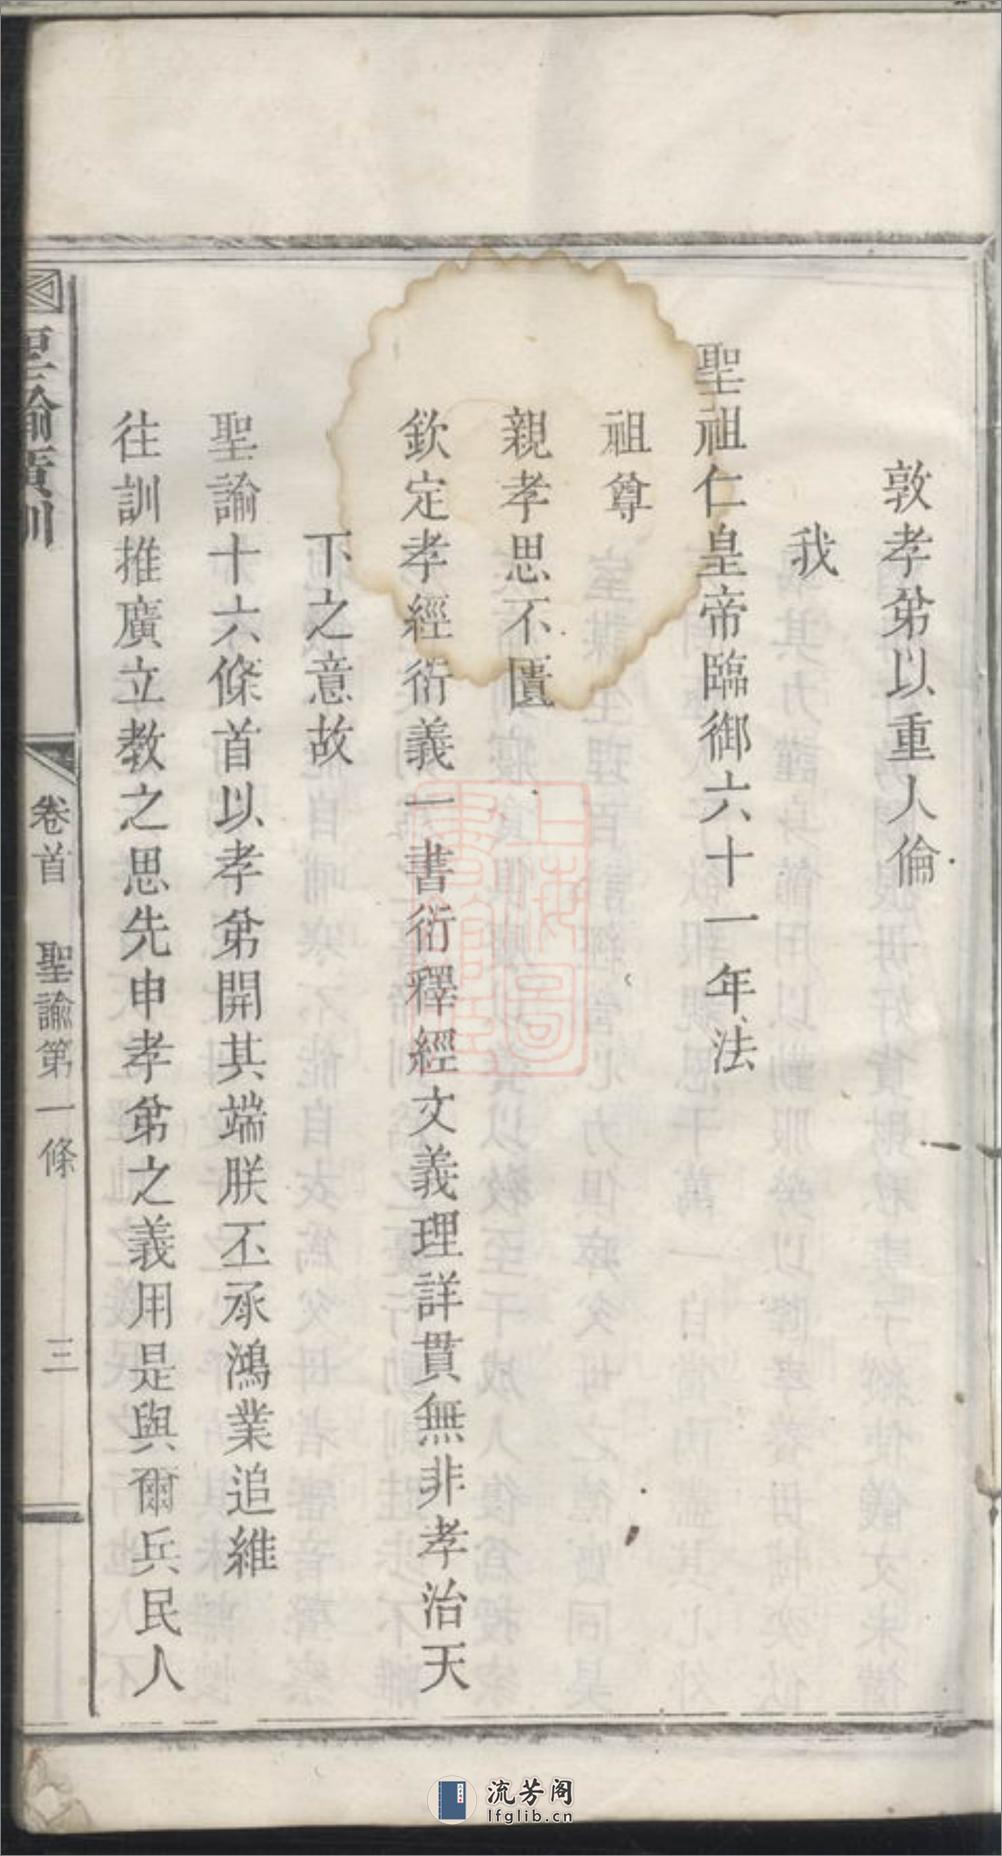 敦孝弟以重人倫
我
聖祖仁皇帝臨御六十一年法
祖尊
親孝思不匱
欽定孝經衍義一書衍釋經文義理詳貫無非孝治天
下之意故
聖諭十六條首以孝弟開其端朕丕承鴻業追維
往訓推廣立教之思先申孝弟之義用是與爾兵民人
聖諭廣訓
卷首 聖諭第一條
三
上海圖書館藏
流芳阁
lfglib.cn